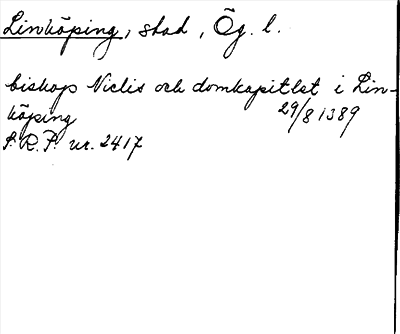 Linköping, stad, Ög. l.
biskop Niclis och domkapitlet i Lin-
köping 29/8 1389
S.R.P. nr. 2417